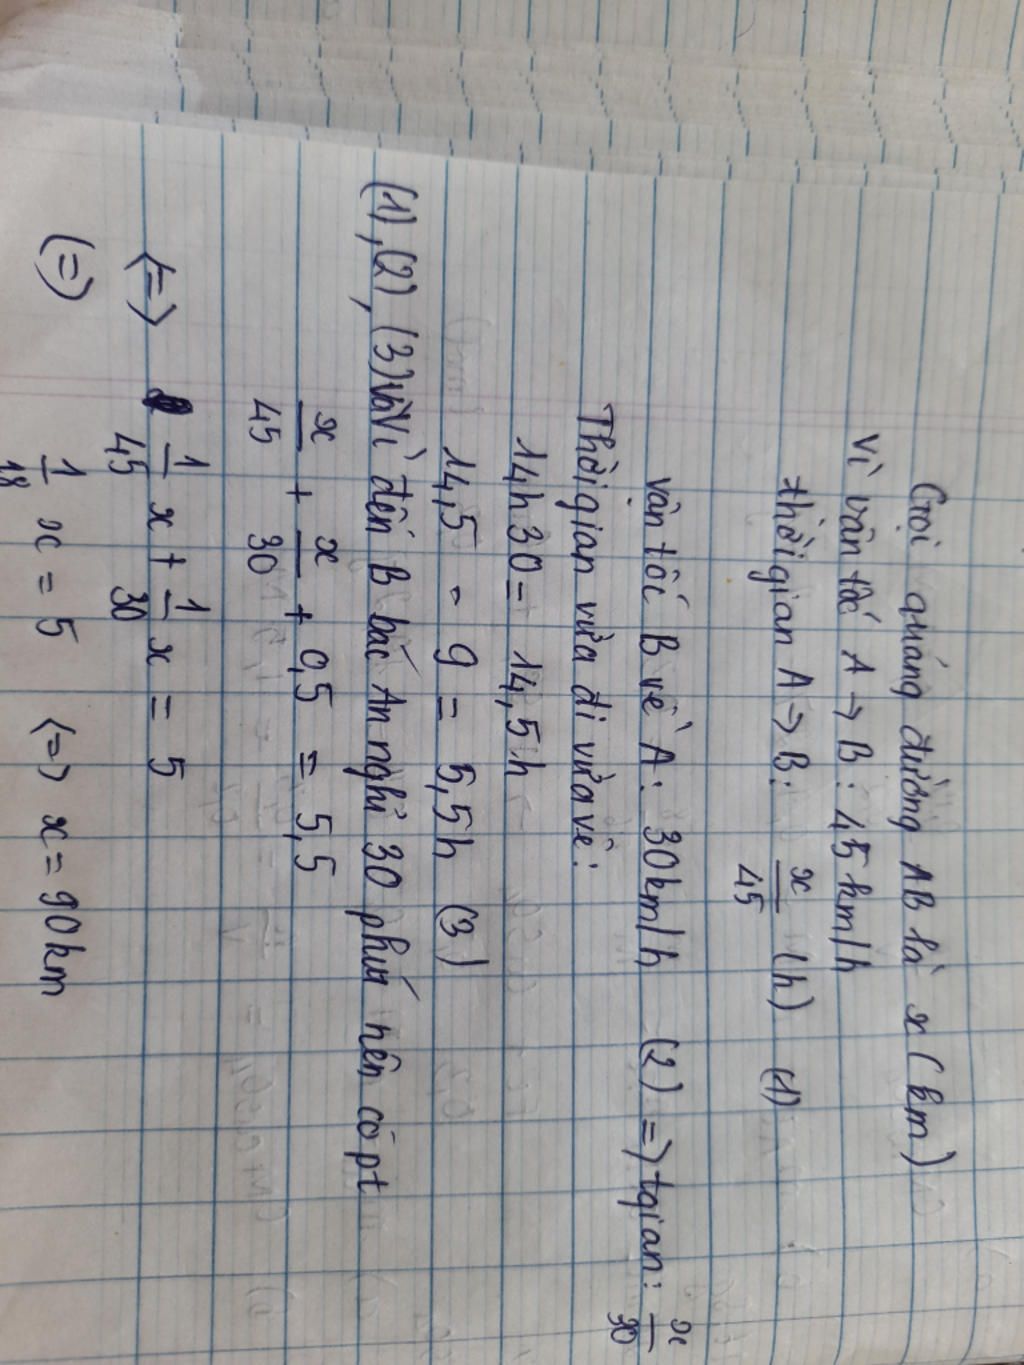 Gọi quãng đường AB là x (km)
Vì vân tốc A → B : 45 km/h
thời gian A → B : x/45 (h) (1)
vận tốc B về A : 30km/h (2) => tgian : x/30
Thời gian vừa đi vừa về :
14h30 = 14,5h
14,5 - 9 = 5,5h (3)
(1), (2), (3) và Vì đến B bác An nghỉ 30 phút nên có pt
x/45 + x/30 + 0,5 = 5,5
<=> 1/45 x + 1/30 x = 5
(=) 1/18 x = 5 <=> x = 90km